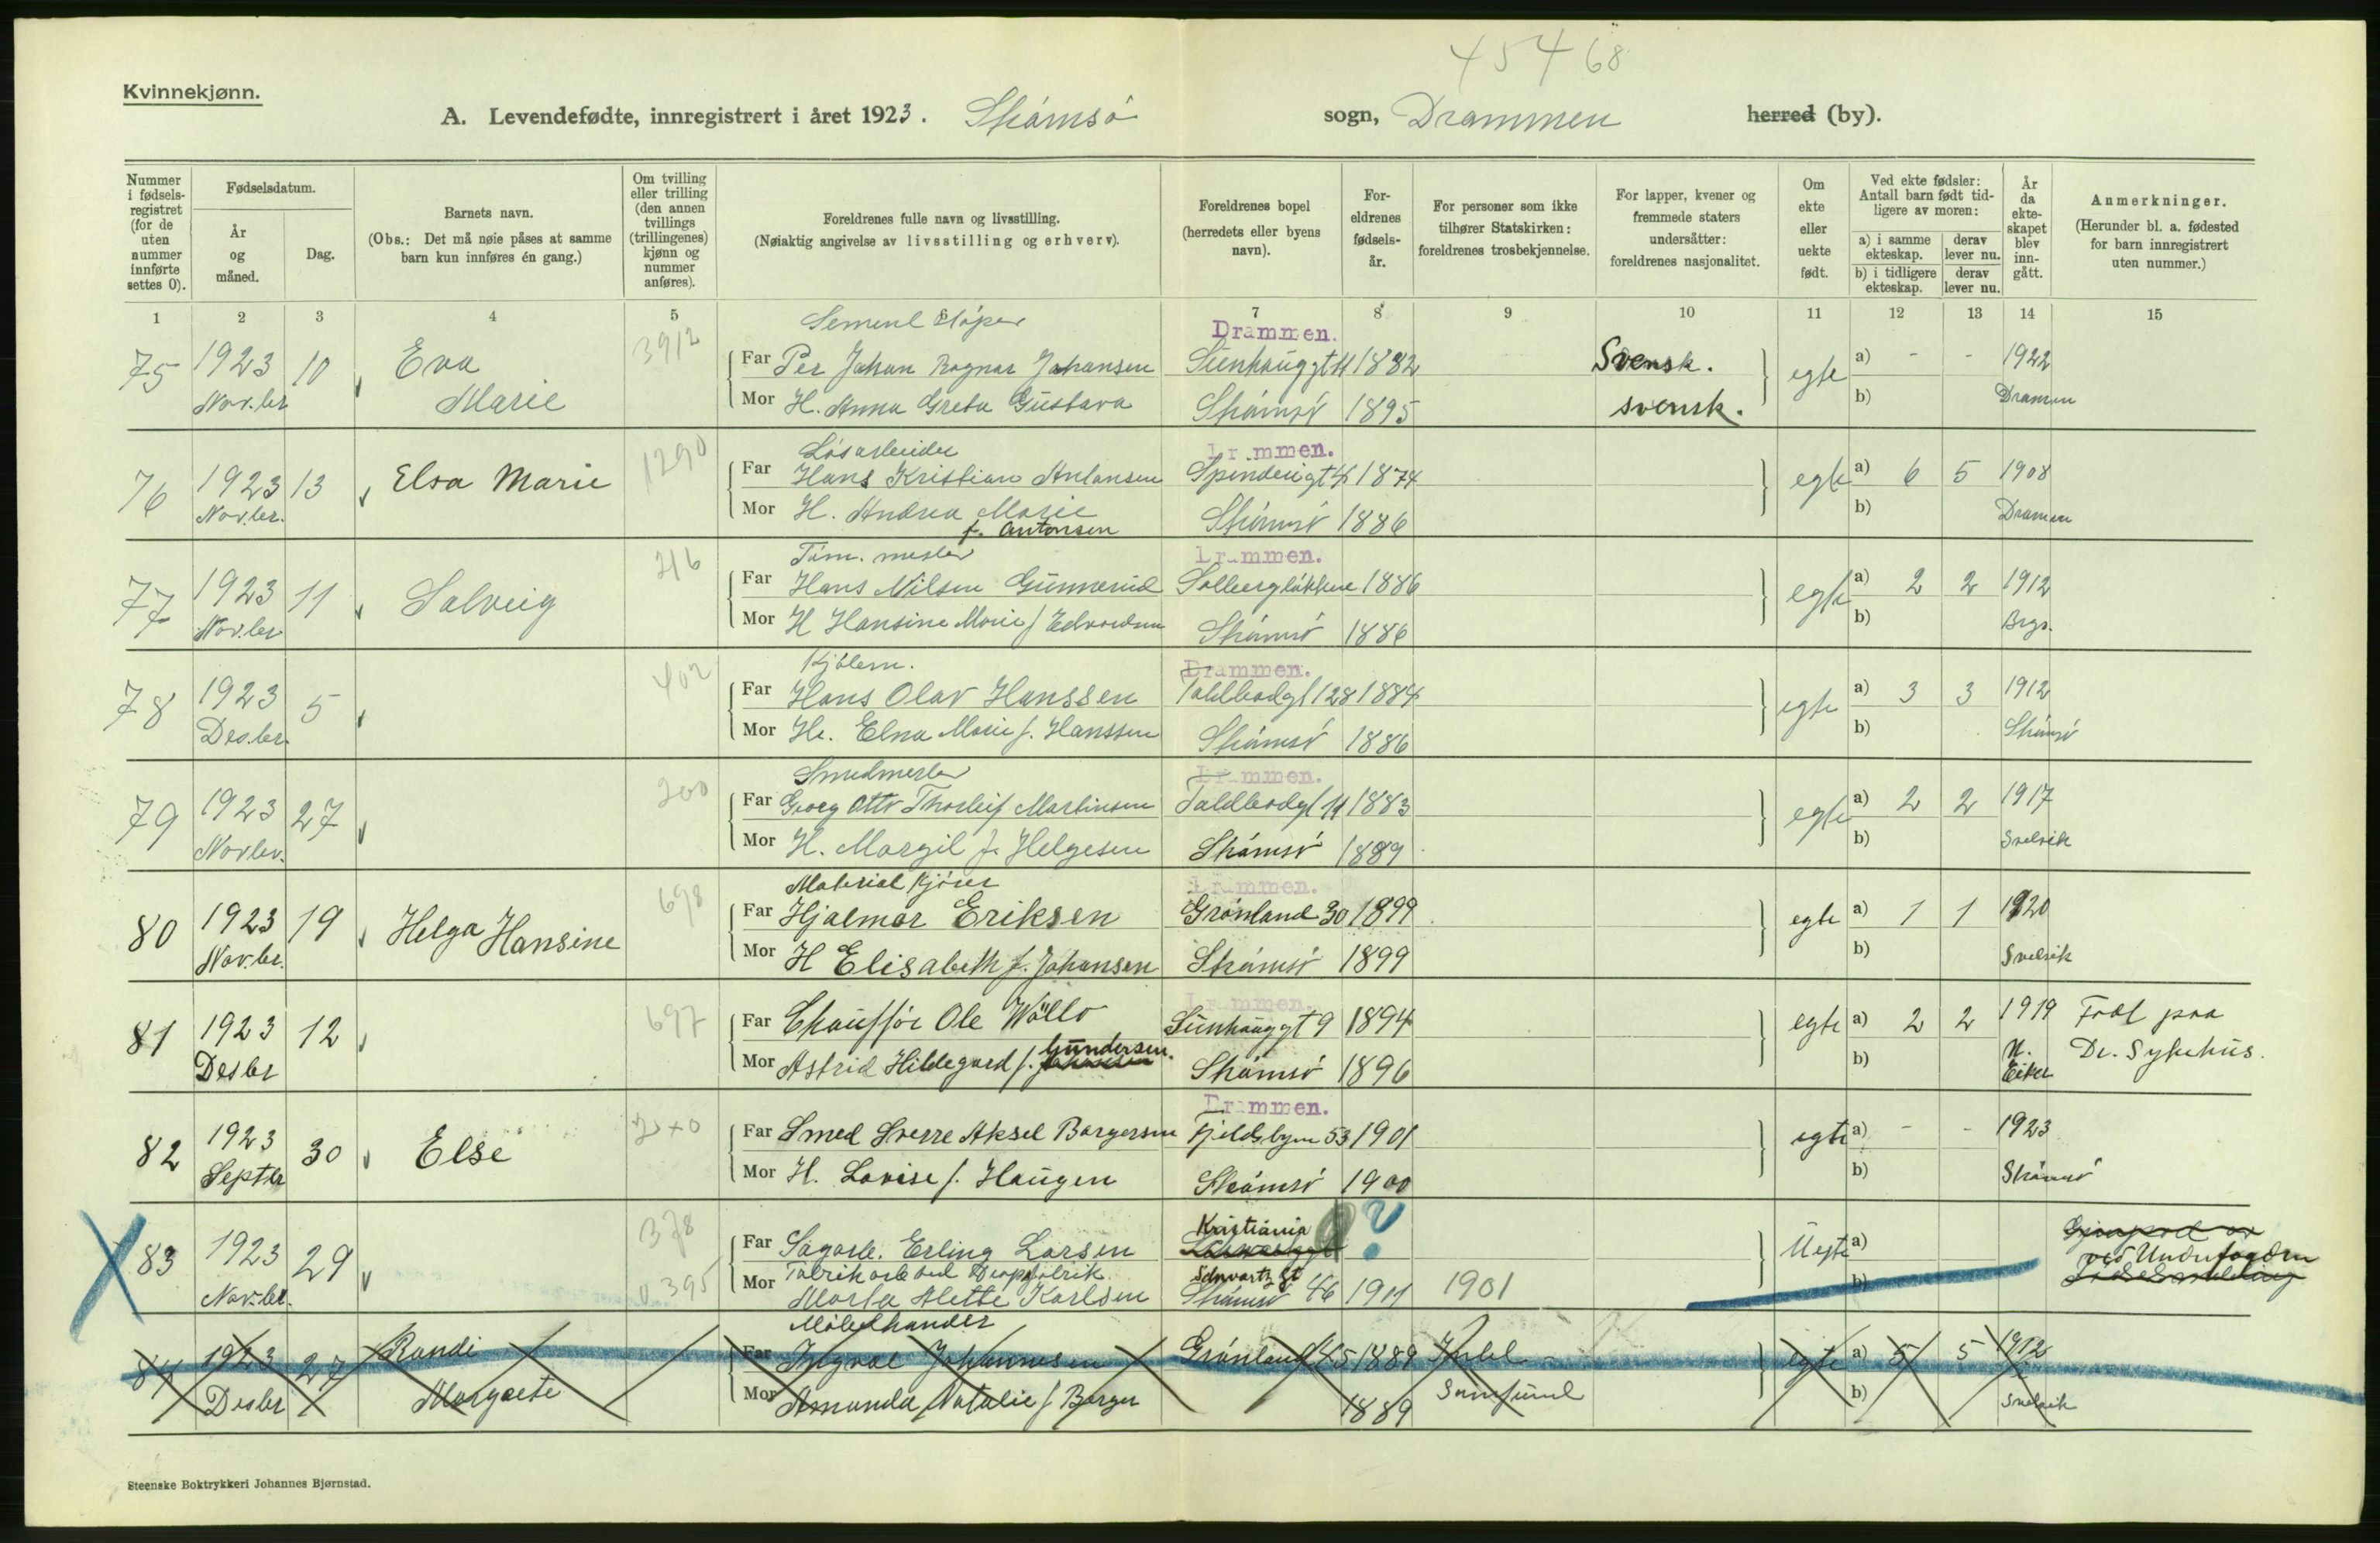 45468
Kvinnekjønn.
A. Levendefødte, innregistrert i året 1923. Strømsø sogn, Drammen herred (by).
Nummer i fødselsregistret (for de uten nummer innførte settes 0).
Fødselsdatum.
År og måned.
Dag.
Barnets navn.
(Obs.: Det må nøie påses at samme barn kun innføres én gang.)
Om tvilling eller trilling (den annen tvillings (trillingenes) kjønn og nummer anføres).
Foreldrenes fulle navn og livsstilling.
(Nøiaktig angivelse av livsstilling og erhverv).
Foreldrenes bopel (herredets eller byens navn).
Foreldrenes fødselsår.
For personer som ikke tilhører Statskirken: foreldrenes trosbekjennelse.
For lapper, kvener og fremmede staters undersåtter: foreldrenes nasjonalitet.
Om ekte eller uekte født.
Ved ekte fødsler: Antall barn født tidligere av moren:
a) i samme ekteskap. derav lever nu.
b) i tidligere ekteskap. derav lever nu.
År da ekteskapet blev inngått.
Anmerkninger.
(Herunder bl. a. fødested for barn innregistrert uten nummer.)
1 2 3 4 5 6 7 8 9 10 11 12 13 14 15
Drammen.
75 1923 10 Eva 3912 Far Per Johan Ragnar Johansen 1882 Svensk. egte a) - - 1922
Nov.br Marie Mor H. Anna Greta Gustava Strømsø 1895 svensk. b) Drammen
Løsarbeider Drammen.
76 1923 13 Elsa Marie 1290 Far Hans Kristian Antonsen 1874 egte a) 6 5 1908
Nov.br. Mor H. Andrea Marie Strømsø 1886 b) Drammen
f. Antonsen
Tøm. mester Drammen.
77 1923 11 Solveig 216 Far Hans Nilsen Gunnerud Solbergløkken 1886 egte a) 2 2 1912
Nov.br Mor H Hansine Marie f Edvardsen Strømsø 1886 b) Brgs.
Drammen.
78 1923 5 402 Far Hans Olav Hanssen Toldbodgt 128 1884 egte a) 3 3 1912
Des.br. Mor H. Elna Marie f. Hanssen Strømsø 1886 b) Strømsø
Smedmester Drammen.
79 1923 27 200 Far Georg Otto Thorleif Martinsen Toldbodgt 11 1883 egte a) 2 2 1917
Novbr. Mor H. Margit f. Helgesen Strømsø 1889 b) Svelvik
Material kjører Drammen.
80 1923 19 Helga Hansine 698 Far Hjalmar Eriksen Grønland 30 1899 egte a) 1 1 1920
Nov.br. Mor H Elisabeth f. Johansen Strømsø 1899 b) Svelvik
Drammen.
81 1923 12 697 Far Chauffør Ole Wållo Sunhauggt 9 1894 egte a) 2 2 1919 Født paa
Desbr Mor Astrid Hildegard f. Gundersen. Strømsø 1896 b) N. Eiker Dr. Sykehus.
Drammen.
82 1923 30 Else Far Smed Sverre Aksel Borgersen Fjeldsbyen 53 1901 egte a) - - 1923
Septbr Mor H. Lovise f. Haugen Strømsø 1900 b) Strømsø
Kristiania ?
83 1923 29 378 Far Sagarb. Erling Larsen Uegte a)
Nov.br. 395 Mor Fabrikarb ved Schwartz gt
Marta Alette Karlsen Strømsø 46 1911 1901 b)
ved Underfogden
Møbelhandler
84 1923 27 Randi Far Ingval Johannesen Grønland 45 1889 egte a) 5 5 1912
Desbr Margrete Mor Amanda Natalie f Borger 1889 Samfund b) Svelvik
Steenske Boktrykkeri Johannes Bjørnstad.